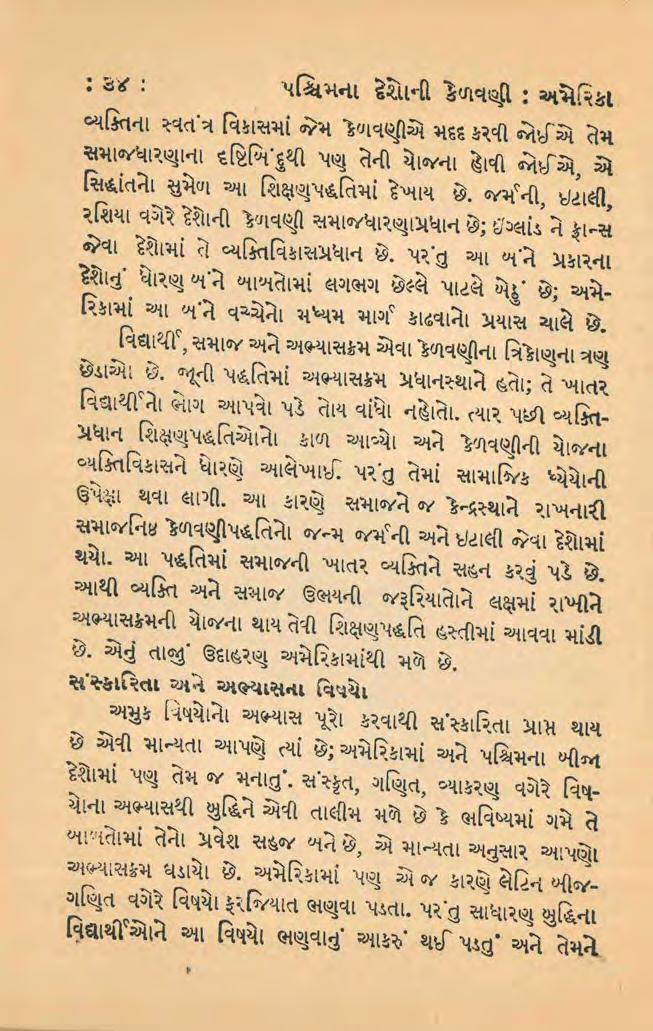 : ૩૪ : પશ્ચિમના દેશોની કેળવણી : અમેરિકા
વ્યક્તિના સ્વતંત્ર વિકાસમાં જેમ કેળવણીએ મદદ કરવી જોઈએ તેમ
સમાજધારણાના દૃષ્ટિબિંદુથી પણ તેની યોજના હોવી જોઈએ, એ
સિદ્ધાંતનો સુમેળ આ શિક્ષણપદ્ધતિમાં દેખાય છે. જર્મની, ઇટાલી,
રશિયા વગેરે દેશોની કેળવણી સમાજધારણાપ્રધાન છે; ઈંગ્લાંડ ને ફ્રાન્સ
જેવા દેશોમાં તે વ્યક્તિવિકાસપ્રધાન છે. પરંતુ આ બંને પ્રકારના
દેશોનું ધોરણ બંને બાબતોમાં લગભગ છેલ્લે પાટલે બેઠું છે; અમે-
રિકામાં આ બંને વચ્ચેનો મધ્યમ માર્ગ કાઢવાનો પ્રયાસ ચાલે છે.
વિદ્યાર્થી, સમાજ અને અભ્યાસક્રમ એવા કેળવણીના ત્રિકોણના ત્રણ
છેડાઓ છે. જૂની પદ્ધતિમાં અભ્યાસક્રમ પ્રધાનસ્થાને હતો; તે ખાતર
વિદ્યાર્થીનો ભોગ આપવો પડે તોય વાંધો નહોતો. ત્યાર પછી વ્યક્તિ-
પ્રધાન શિક્ષણપદ્ધતિઓનો કાળ આવ્યો અને કેળવણીની યોજના
વ્યક્તિવિકાસને ધોરણે આલેખાઈ. પરંતુ તેમાં સામાજિક ધ્યેયોની
ઉપેક્ષા થવા લાગી. આ કારણે સમાજને જ કેન્દ્રસ્થાને રાખનારી
સમાજનિષ્ઠ કેળવણીપદ્ધતિનો જન્મ જર્મની અને ઇટાલી જેવા દેશોમાં
થયો. આ પદ્ધતિમાં સમાજની ખાતર વ્યક્તિને સહન કરવું પડે છે.
આથી વ્યક્તિ અને સમાજ ઉભયની જરૂરિયાતોને લક્ષમાં રાખીને
અભ્યાસક્રમની યોજના થાય તેવી શિક્ષણપદ્ધતિ હસ્તીમાં આવવા માંડી
છે. એનું તાજું ઉદાહરણ અમેરિકામાંથી મળે છે.
સંસ્કારિતા અને અભ્યાસના વિષયો
અમુક વિષયોનો અભ્યાસ પૂરો કરવાથી સંસ્કારિતા પ્રાપ્ત થાય
છે એવી માન્યતા આપણે ત્યાં છે; અમેરિકામાં અને પશ્ચિમના બીજા
દેશોમાં પણ તેમ જ મનાતું. સંસ્કૃત, ગણિત, વ્યાકરણ વગેરે વિષ-
યોના અભ્યાસથી બુદ્ધિને એવી તાલીમ મળે છે કે ભવિષ્યમાં ગમે તે
બાબતોમાં તેનો પ્રવેશ સહજ બને છે, એ માન્યતા અનુસાર આપણો
અભ્યાસક્રમ ઘડાયો છે. અમેરિકામાં પણ એ જ કારણે લેટિન બીજ-
ગણિત વગેરે વિષયો ફરજિયાત ભણવા પડતા. પરંતુ સાધારણ બુદ્ધિના
વિદ્યાર્થીઓને આ વિષયો ભણવાનું આકરું થઈ પડતું અને તેમને